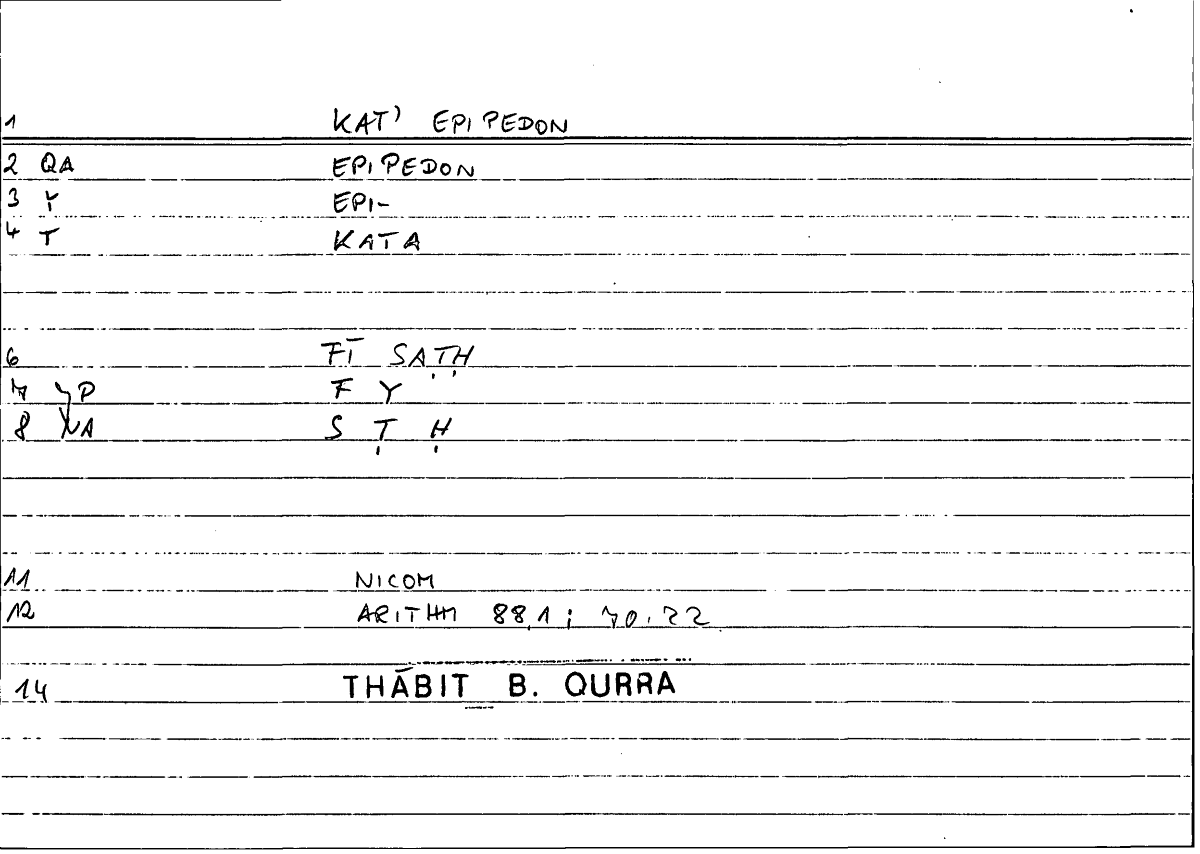 1 KAT' EPIPEDON
2 QA EPIPEDON
3 Y EPI-
4 T KATA
6 FĪ SAṬḤ
7 YP F Y
8 NA S Ṭ Ḥ
11 NICOM
12 ARITHM 88,1; 70.22
14 THĀBIT B. QURRA